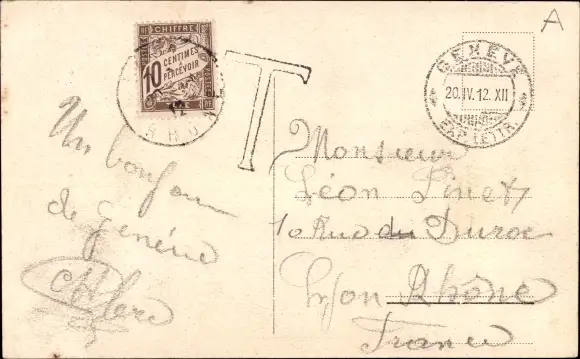 A
CHIFFRE
10 CENTIMES
A PERCEVOIR
RHONE
T
GENÈVE
20.IV.12.XII
EXP. LETTR.
Un bonjour
de Genève
Monsieur
Léon Pinet
10 Rue du Duroc
Lyon Rhône
France